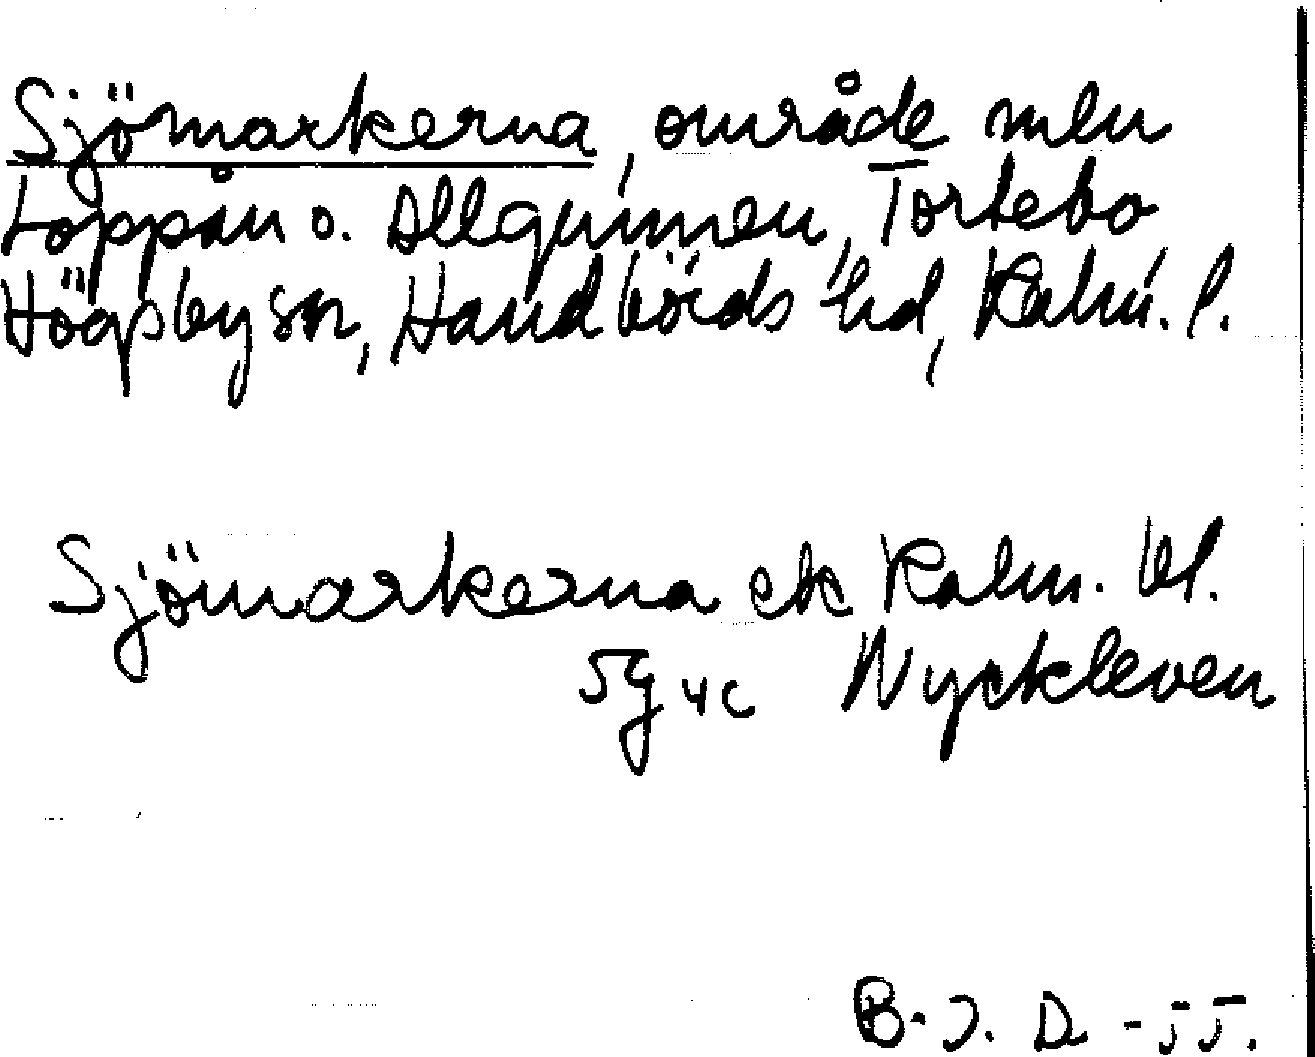 Sjömarkerna, område mln
Loppån o. Allgunnen, Tortebo
Högsby sn, Handbörds hd, Kalm. l.
Sjömarkerna ek Kalm. bl.
5g4c Nyckleven
B. J. D. -55.